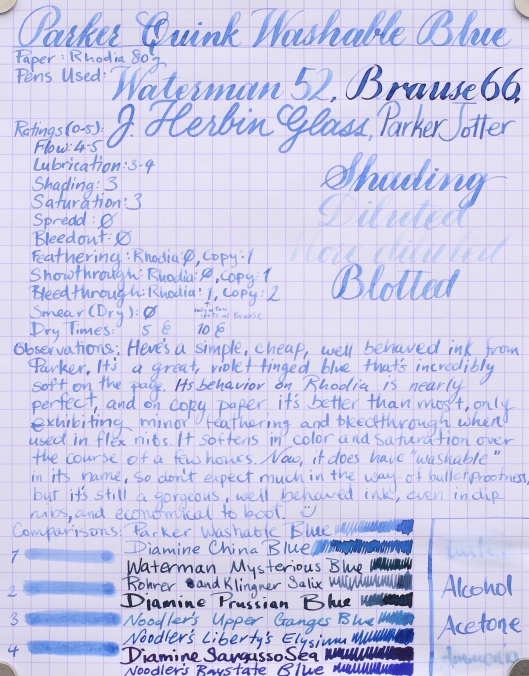 Parker Quink Washable Blue
Paper: Rhodia 80g
Pens Used: Waterman 52, Brause 66,
J. Herbin Glass, Parker Jotter
Ratings (0-5):
Flow: 4-5
Lubrication: 3-4
Shading: 3
Saturation: 3
Spread: Ø
Bleedout: Ø
Feathering: Rhodia: Ø, Copy: 1
Showthrough: Rhodia: Ø, Copy: 1
Bleedthrough: Rhodia: 1, Copy: 2
Smear (Dry): Ø
Dry Times: 5 10
Shading
Diluted
More diluted
Blotted
Observations: Here's a simple, cheap, well behaved ink from
Parker. It's a great, violet-tinged blue that's incredibly
soft on the page. Its behavior on Rhodia is nearly
perfect, and on copy paper it's better than most, only
exhibiting minor feathering and bleedthrough when
used in flex nibs. It softens in color and saturation over
the course of a few hours. Now, it does have "washable"
in its name, so don't expect much in the way of bulletproofness,
but it's still a gorgeous, well behaved ink, even in dip
nibs, and economical to boot.
Comparisons: Parker Washable Blue
Diamine China Blue
Waterman Mysterious Blue
Rohrer and Klingner Salix
Diamine Prussian Blue
Noodler's Upper Ganges Blue
Noodler's Liberty's Elysium
Diamine Sargasso Sea
Noodler's Baystate Blue
1
2
3
4
Water
Alcohol
Acetone
Ammonia